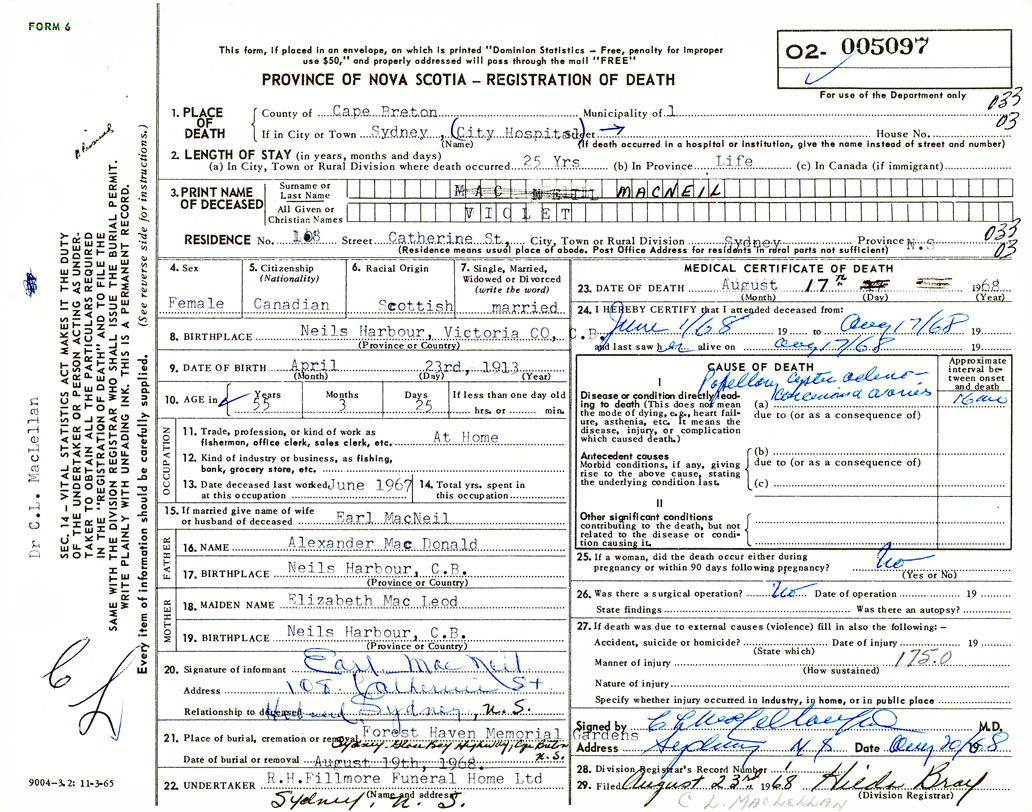 FORM 6
This form, if placed in an envelope, on which is printed "Dominion Statistics – Free, penalty for improper
use $50," and properly addressed will pass through the mail "FREE"
PROVINCE OF NOVA SCOTIA – REGISTRATION OF DEATH
02- 005097
For use of the Department only
033
03
1. PLACE OF DEATH
County of Cape Breton Municipality of 1
If in City or Town Sydney, (City Hospital) Street House No.
(Name) (If death occurred in a hospital or institution, give the name instead of street and number)
2. LENGTH OF STAY (in years, months and days)
(a) In City, Town or Rural Division where death occurred 25 Yrs (b) In Province Life (c) In Canada (if immigrant)
3. PRINT NAME OF DECEASED
Surname or Last Name MAC NEIL MACNEIL
All Given or Christian Names VIOLET
RESIDENCE No. 108 Street Catherine St, City, Town or Rural Division Sydney Province N.S
(Residence means usual place of abode. Post Office Address for residents in rural parts not sufficient)
033
03
4. Sex
Female
5. Citizenship (Nationality)
Canadian
6. Racial Origin
Scottish
7. Single, Married, Widowed or Divorced (write the word)
married
8. BIRTHPLACE Neils Harbour, Victoria CO, C.B.
(Province or Country)
9. DATE OF BIRTH April 23rd, 1913
(Month) (Day) (Year)
10. AGE in Years Months Days If less than one day old
55 3 25 hrs. or min.
OCCUPATION
11. Trade, profession, or kind of work as
fisherman, office clerk, sales clerk, etc. At Home
12. Kind of industry or business, as fishing,
bank, grocery store, etc.
13. Date deceased last worked at this occupation June 1967
14. Total yrs. spent in this occupation
15. If married give name of wife
or husband of deceased Earl MacNeil
FATHER
16. NAME Alexander Mac Donald
17. BIRTHPLACE Neils Harbour, C.B.
(Province or Country)
MOTHER
18. MAIDEN NAME Elizabeth Mac Leod
19. BIRTHPLACE Neils Harbour, C.B.
(Province or Country)
20. Signature of informant Earl MacNeil
Address 108 Catherine St
Relationship to deceased Husband Sydney, N.S.
21. Place of burial, cremation or removal Forest Haven Memorial Gardens
Sydney
N.S.
Date of burial or removal August 19th, 1968.
22. UNDERTAKER R.H.Fillmore Funeral Home Ltd
(Name and address)
Sydney, N.S.
MEDICAL CERTIFICATE OF DEATH
23. DATE OF DEATH August 17th 1968
(Month) (Day) (Year)
24. I HEREBY CERTIFY that I attended deceased from:
June 1/68 19 to Aug 17/68 19
and last saw her alive on Aug 17/68 19
CAUSE OF DEATH
Approximate interval between onset and death
I
Disease or condition directly leading to death (This does not mean
the mode of dying, e.g., heart failure, asthenia, etc. It means the
disease, injury, or complication
which caused death.)
(a) Papillary
due to (or as a consequence of)
16 mo
Antecedent causes
Morbid conditions, if any, giving
rise to the above cause, stating
the underlying condition last.
(b)
due to (or as a consequence of)
(c)
II
Other significant conditions
contributing to the death, but not
related to the disease or condition causing it.
25. If a woman, did the death occur either during
pregnancy or within 90 days following pregnancy? No
(Yes or No)
26. Was there a surgical operation? No Date of operation 19
State findings Was there an autopsy?
27. If death was due to external causes (violence) fill in also the following: –
Accident, suicide or homicide? Date of injury 19
(State which)
Manner of injury 175.0
(How sustained)
Nature of injury
Specify whether injury occurred in industry, in home, or in public place
Signed by M.D.
Address Sydney N S Date Aug 20/68 19
28. Division Registrar's Record Number
29. Filed August 23rd, 1968 Hilda Bray
(Division Registrar)
C L MACLELLAN
Dr C.L. MacLellan
SEC. 14 – VITAL STATISTICS ACT MAKES IT THE DUTY
OF THE UNDERTAKER OR PERSON ACTING AS UNDER-
TAKER TO OBTAIN ALL THE PARTICULARS REQUIRED
IN THE "REGISTRATION OF DEATH" AND TO FILE THE
SAME WITH THE DIVISION REGISTRAR WHO SHALL ISSUE THE BURIAL PERMIT.
WRITE PLAINLY WITH UNFADING INK. THIS IS A PERMANENT RECORD.
Every item of information should be carefully supplied. (See reverse side for instructions.)
9004–3.2: 11-3-65